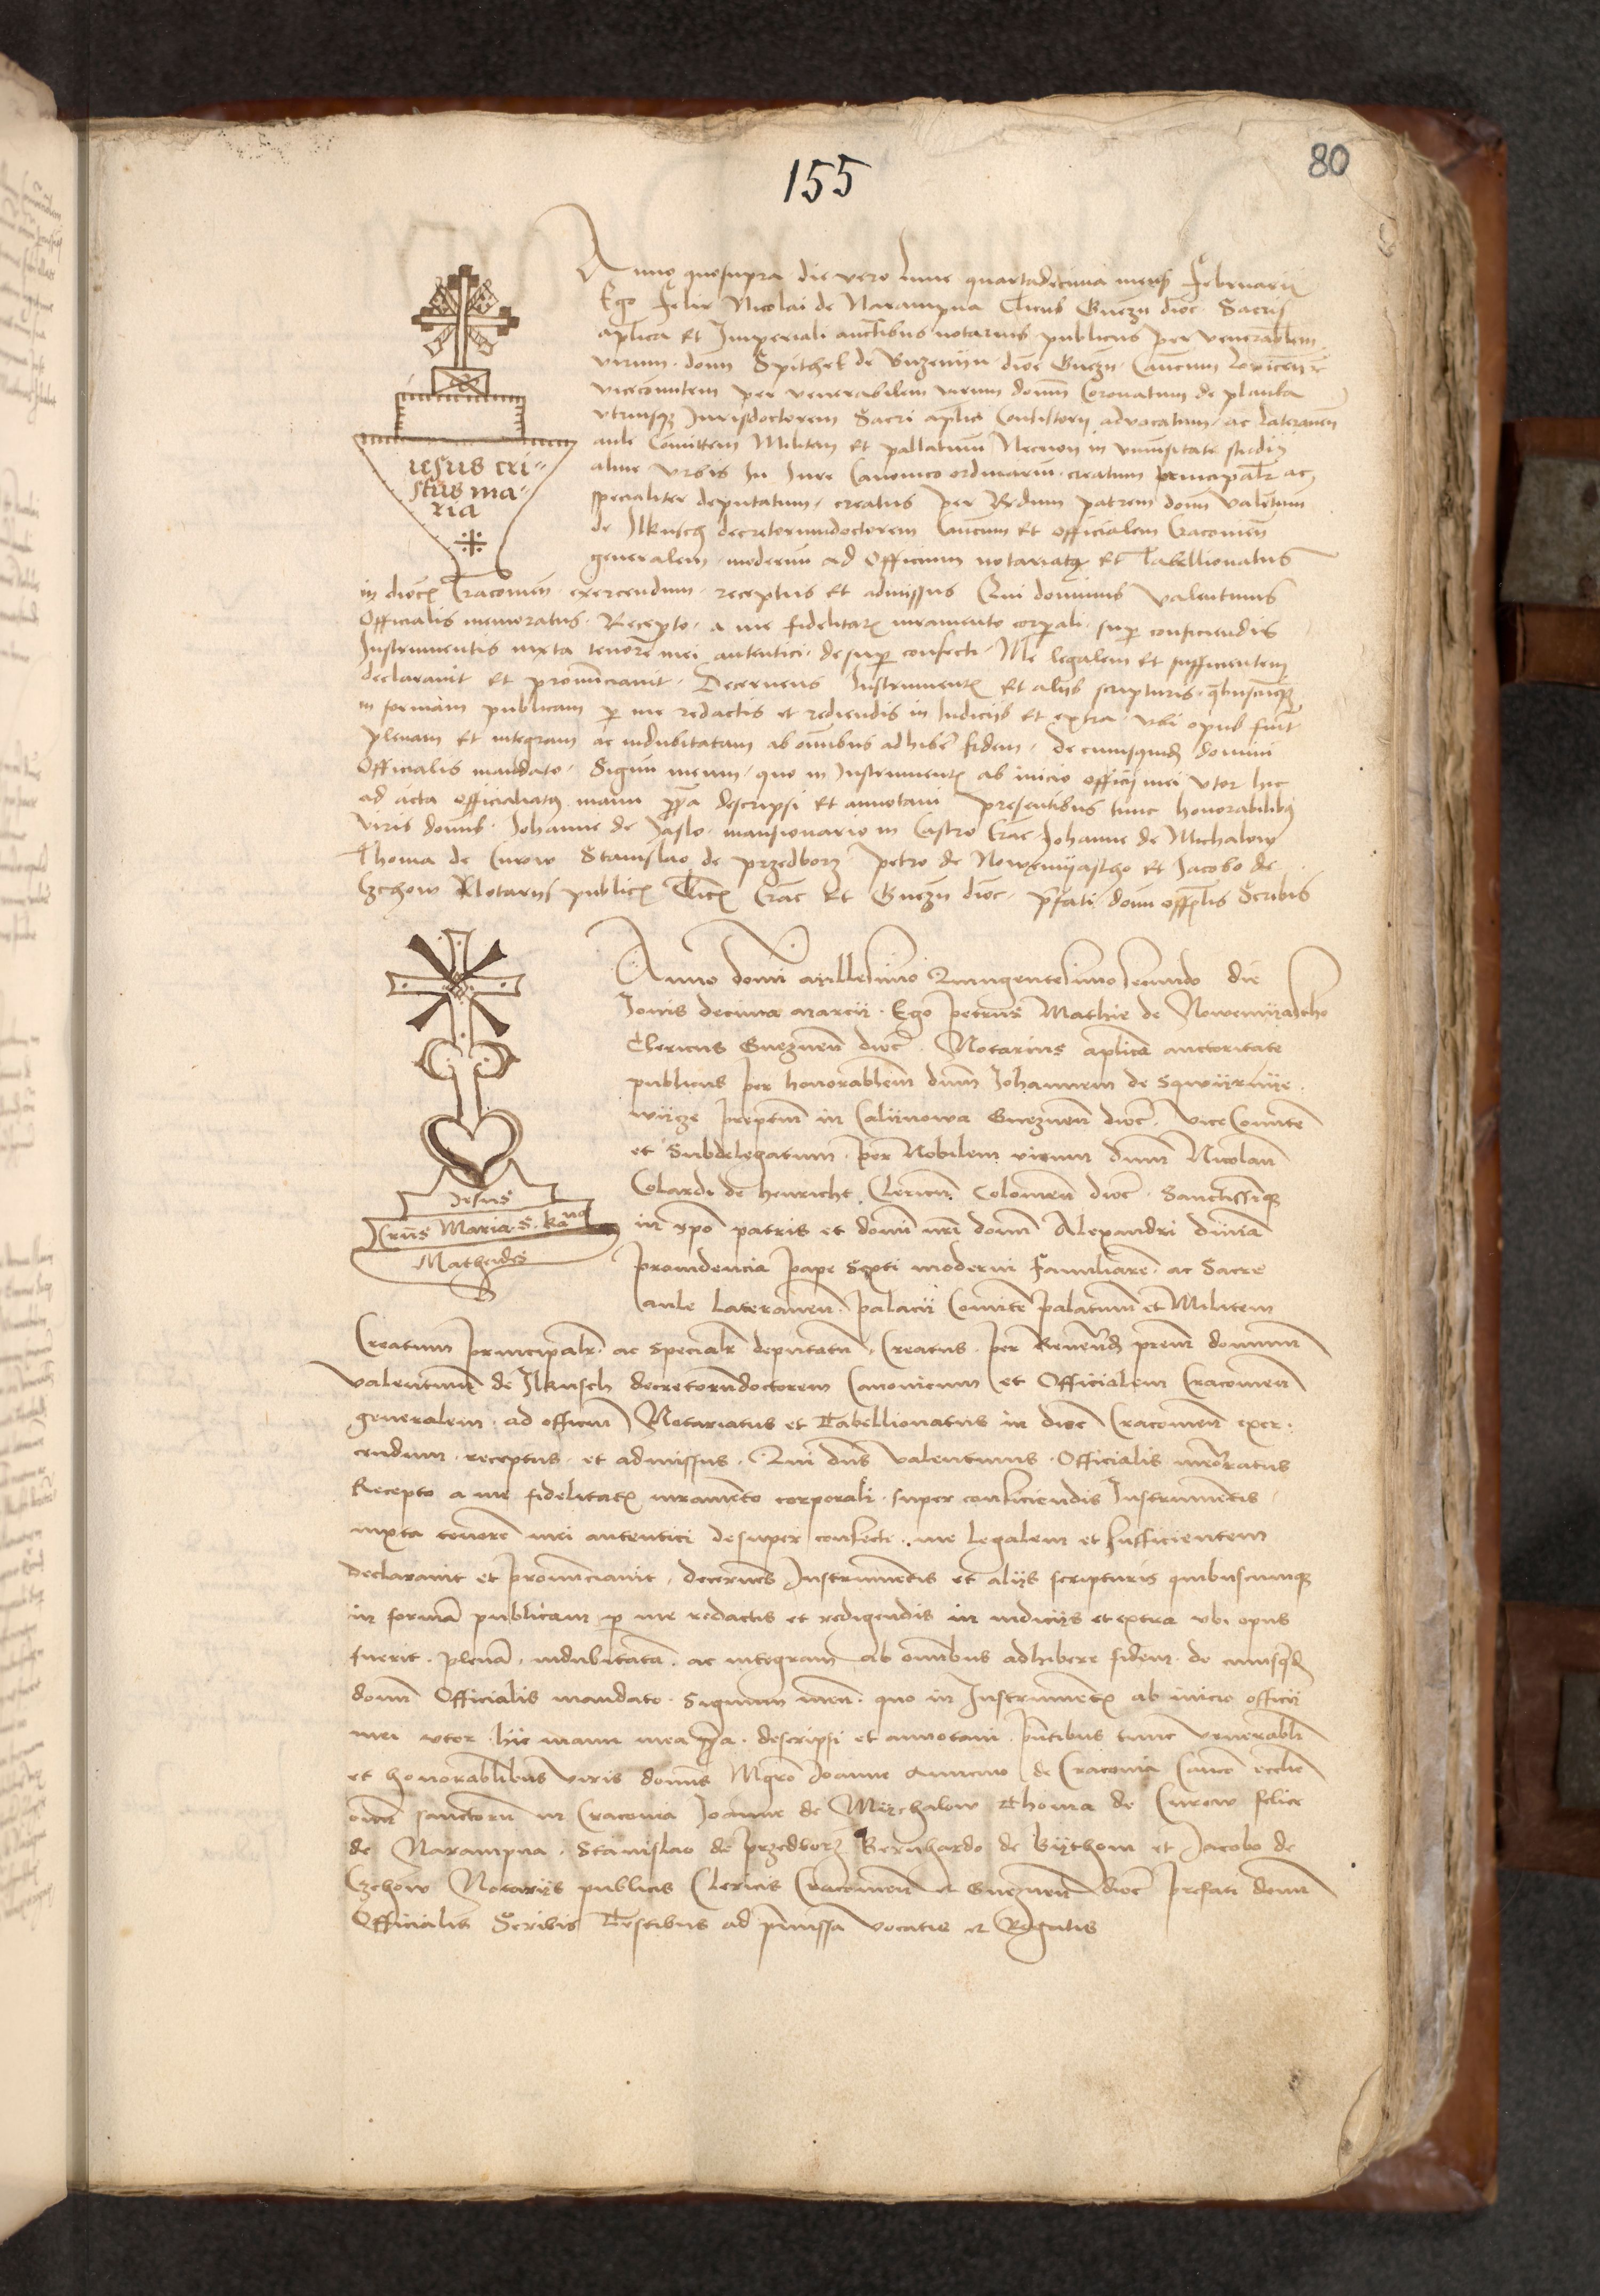 155
80
Anno quosupra die vero lune quartadecima mens Februarii
Ego Felix Nicolai de Narampna Clicus Gnezn dioc Sacris
aplica et Imperiali auctibus notarius publicus per venerablem
virum donn Spithek de dioc Gnezn Cancum Lovicen
vicecomitem per venerabilem virum domm Coronatum de planka
utriusq Jurisdoctorem Sacri aplic Consistorij advocatum ac Lateranen
aule Comittem Militem et pallatinum Necnon in universitate studij
alme Urbis In Jure Canonico ordinarium creatum principalr ac
specialiter deputatum creatus per Rndum patrem donn valentinum
de Ilkusch decretorumdoctorem Cancum et officialem Cracovien
generalem modernu ad Officium notariatq et Tabellionatus
iesus cri-
stus ma-
ria
in dioc Cracovien exercendum receptus et admissus Qui dominus valentinus
Officialis memoratus Recepto a me fidelitatis iuramento corporali sup conficiendis
Instrumentis iuxta tenore mei autentici desup confecti Me legalem et sufficientem
declaravit et pronunciavit Decernens Instrumentis et alijs scripturis qbuscumq
in formam publicam p me redactis et rediendis in Iudicijs et extra ubi opus fuerit
plenam et integram ac indubitatam ab omnibus adhiberi fidem de cuiusquid domini
Officialis mandato Signum meum quo in Instrumentis ab inicio officij mei utor hic
ad acta officialiatus manu ppria descripsi et annotavi presentibus tunc honorabilibus
viris domis Johanne de Jaslo mansionario in Castro Crac Johanne de Michalow
Thoma de Curow Stanislao de przedborz petro de Nowemyastho et Jacobo de
Czchow Notarijs publicis Clicis Crac et Gnezn dioc pfati domi offilis Scribis
Anno domi Millesimo Quingentesimo secundo die
Jovis decima marcii Ego petrus Mathie de Nowemyastho
Clericus Gneznen dioc Notarius aplica auctoritate
publicus per honorablem dnum Johannem de Sqwyrnye
wycze preptum in Calynowa Gneznen dioc vice Comite
et Subdelegatum per Nobilem virum dnum Nicolau
Colardi de henricht Clericum Colonien dioc Sanctissiq
in xpo patris et domi nri domi Alexandri divina
providencia pape Sexti moderni Familiare ac Sacre
aule Lateranen palacii Comite palatinu et Militem
Jesus
Xrus Maria S. Kana
Matheides
Creatum principalr ac specialr deputatu Creatus per Reverend prem domnum
valentinum de Ilkusch decretorumdoctorem Canonicum et Officialem Cracovien
generalem ad officium Notariatus et Tabellionatus in dioc Cracovien exer
cendum receptus et admissus Qui dns valentinus Officialis memoratus
Recepto a me fidelitatis iuramento corporali super conficiendis Instrumentis
iuxta tenore mei autentici desuper confecti me legalem et sufficientem
declaravit et pronunciavit decernens Instrumentis et alijs scripturis quibuscumq
in forma publicam p me redactis et redigendis in iudicijs et extra ubi opus
fuerit plena indubitata ac integram ab omnibus adhibere fidem de cuiusqd
domi Officialis mandato Signum meu quo in Instrumentis ab inicio officii
mei utor hic manu mea ppa descripsi et annotavi pntibus tunc venerabli
et honorablibus viris domis Mgro Joanne de Cracovia Canco ecclie
omn sanctoru in Cracovia Joanne de Mychalow Thoma de Curow felice
de Narampna Stanislao de przedborz Bernhardo de Bythom et Jacobo de
Czchow Notarijs publicis Clericis Cracovien et Gneznen dioc prefati domi
Officialis Scribis Testibus ad pmissa vocatis et Rogatis